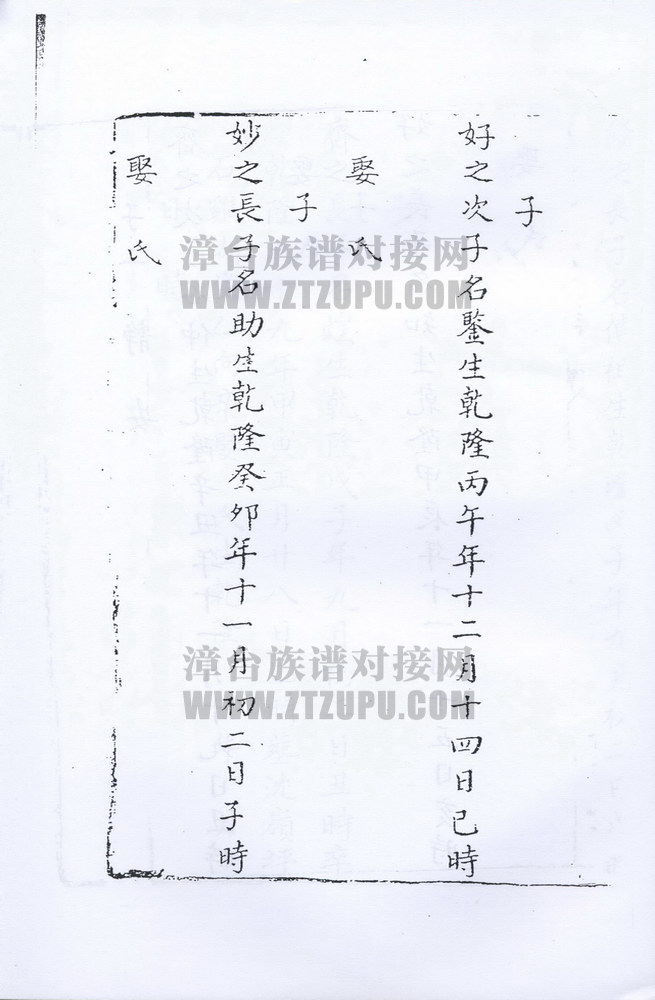 子
好之次子名鑒生乾隆丙午年十二月十四日巳時
娶 氏
子
妙之長子名助生乾隆癸卯年十一月初二日子時
娶 氏
漳台族谱对接网
WWW.ZTZUPU.COM
漳台族谱对接网
WWW.ZTZUPU.COM